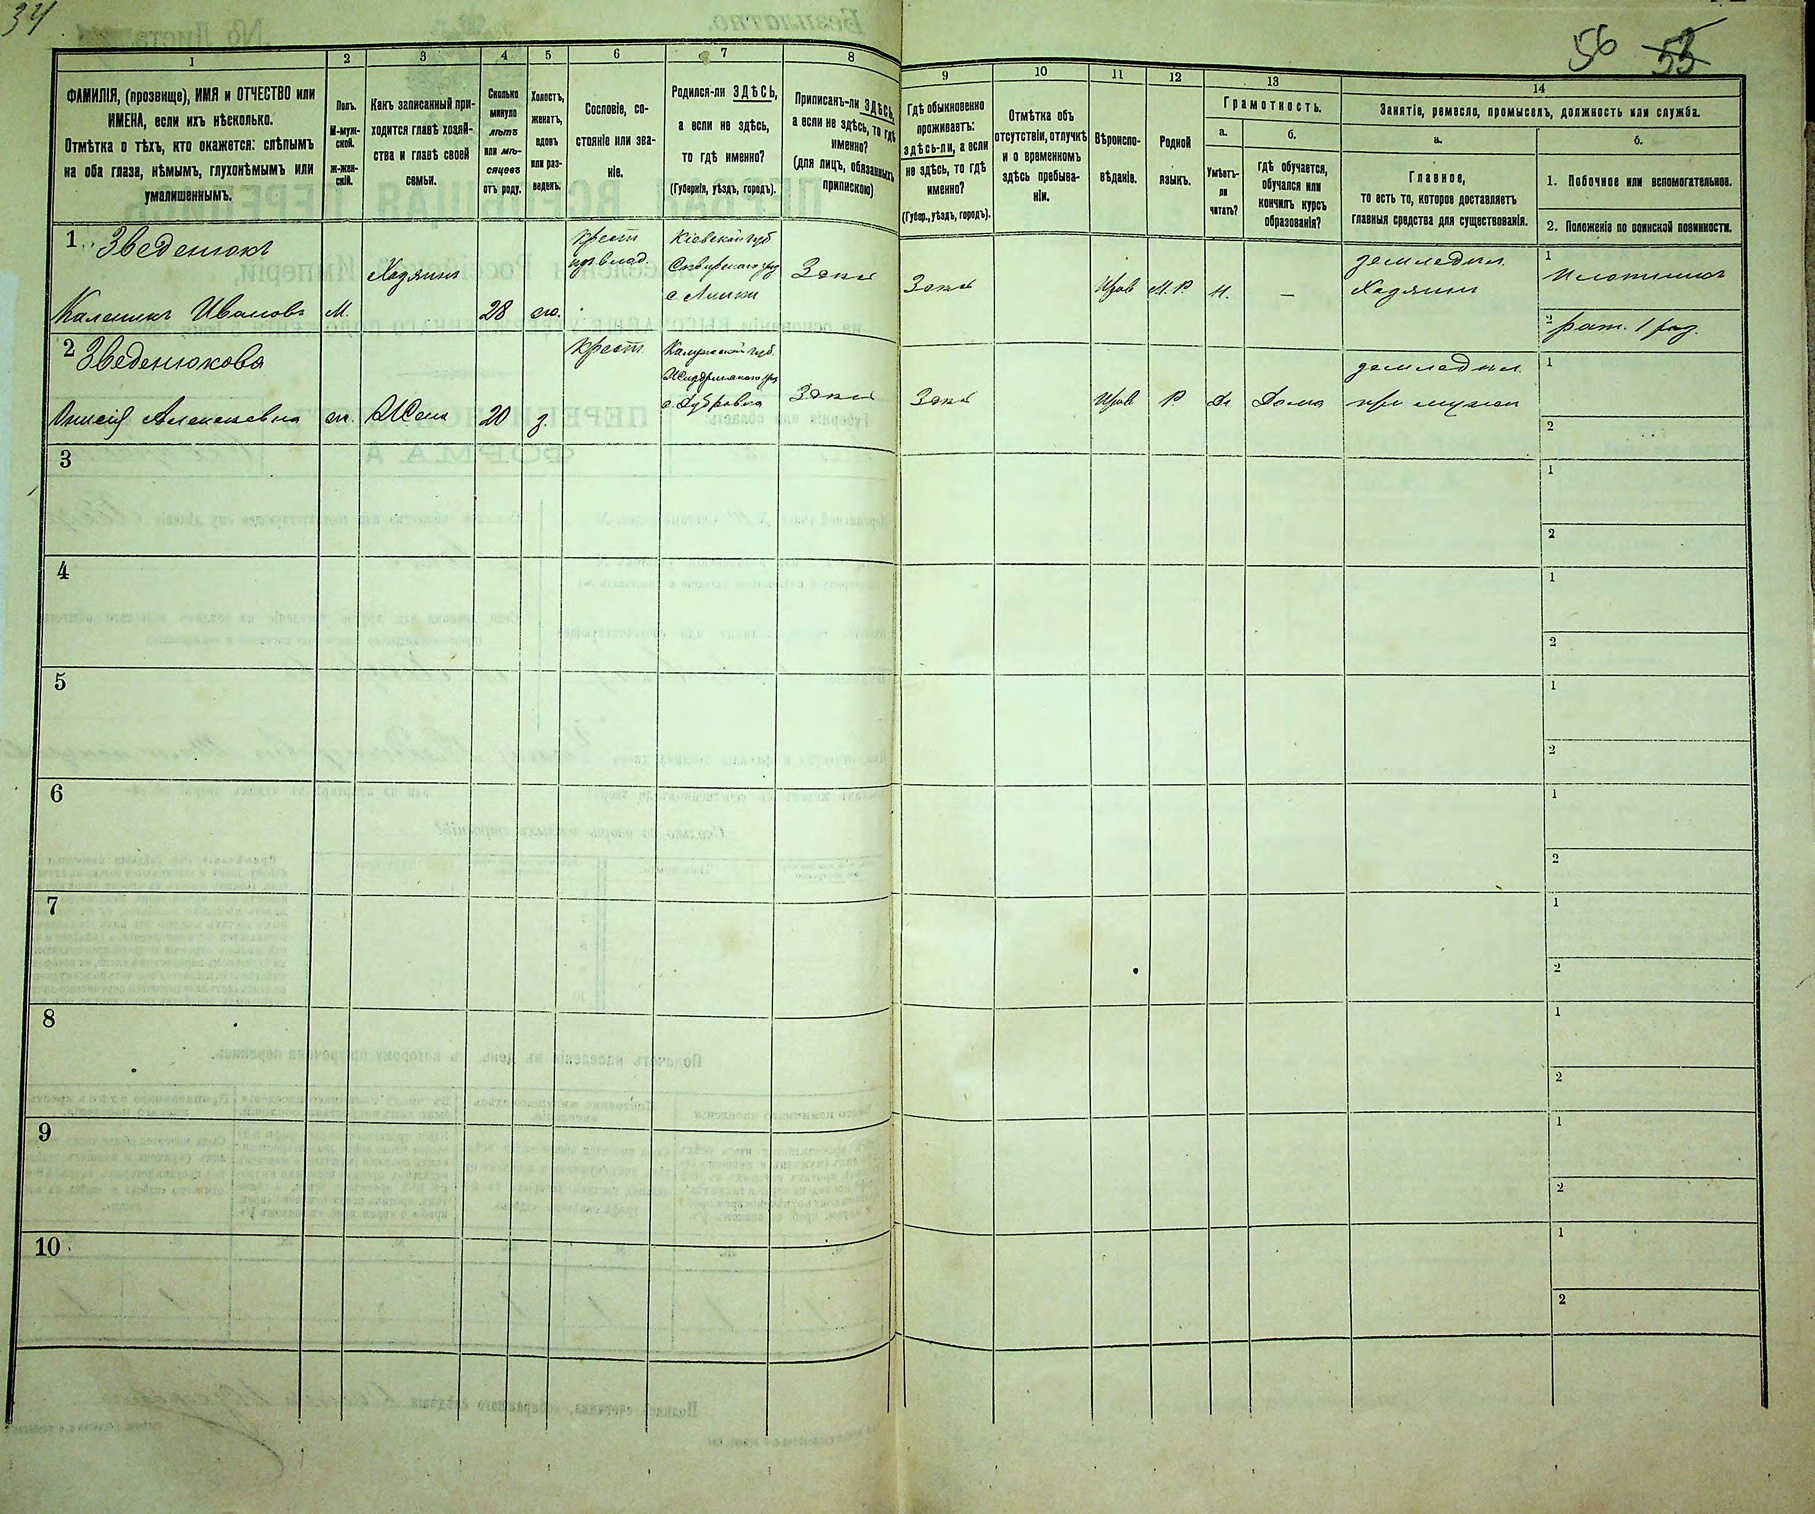 34
56 53
1
2
3
4
5
6
7
8
9
10
11
12
13
14
ФАМИЛІЯ, (прозвище), ИМЯ и ОТЧЕСТВО или
ИМЕНА, если ихъ нѣсколько.
Отмѣтка о тѣхъ, кто окажется: слѣпымъ
на оба глаза, нѣмымъ, глухонѣмымъ или
умалишеннымъ.
Полъ.
М-муж-
ской.
Ж-жен-
скій.
Какъ записанный при-
ходится главѣ хозяй-
ства и главѣ своей
семьи.
Сколько
минуло
лѣтъ
или мѣ-
сяцевъ
отъ роду.
Холостъ,
женатъ,
вдовъ
или раз-
веденъ.
Сословіе, со-
стояніе или зва-
ніе.
Родился-ли ЗДѢСЬ,
а если не здѣсь,
то гдѣ именно?
(Губернія, уѣздъ, городъ).
Приписанъ-ли ЗДѢСЬ,
а если не здѣсь, то гдѣ
именно?
(для лицъ, обязанныхъ
припискою)
Гдѣ обыкновенно
проживаетъ:
здѣсь-ли, а если
не здѣсь, то гдѣ
именно?
(Губер., уѣздъ, городъ).
Отмѣтка объ
отсутствіи, отлучкѣ
и о временномъ
здѣсь пребыва-
ніи.
Вѣроиспо-
вѣданіе.
Родной
языкъ.
Грамотность.
а.
Умѣетъ-
ли
читать?
б.
Гдѣ обучается,
обучался или
кончилъ курсъ
образованія?
Занятіе, ремесло, промыселъ, должность или служба.
а.
Главное,
то есть то, которое доставляетъ
главныя средства для существованія.
б.
1. Побочное или вспомогательное.
2. Положеніе по воинской повинности.
1 Зведенюкъ
Калиникъ Ивановъ
М.
Хозяинъ
28
ж.
крест.
из влад.
Кіевской губ
Сквирскаго уез
Здесь
Здесь
Прав
М. Р.
Н.
—
земледел.
Хозяинъ
1
Плотникъ
2
рат. 1 раз.
2 Зведенюкова
Анисія Алексеевна
ж.
Жена
20
з.
крест.
Калужской губ.
Жиздринскаго уез
с. Дубровка
Здесь
Здесь
Прав
Р.
Да
Дома
земледел.
при муже
1
2
3
1
2
4
1
2
5
1
2
6
1
2
7
1
2
8
1
2
9
1
2
10
1
2